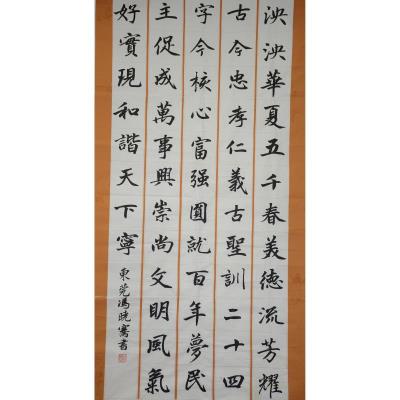 泱泱華夏五千春美德流芳耀
古今忠孝仁義古聖訓二十四
字今核心富强圓就百年夢民
主促成萬事興崇尚文明風氣
好實現和諧天下寧
東莞馮晓騫書